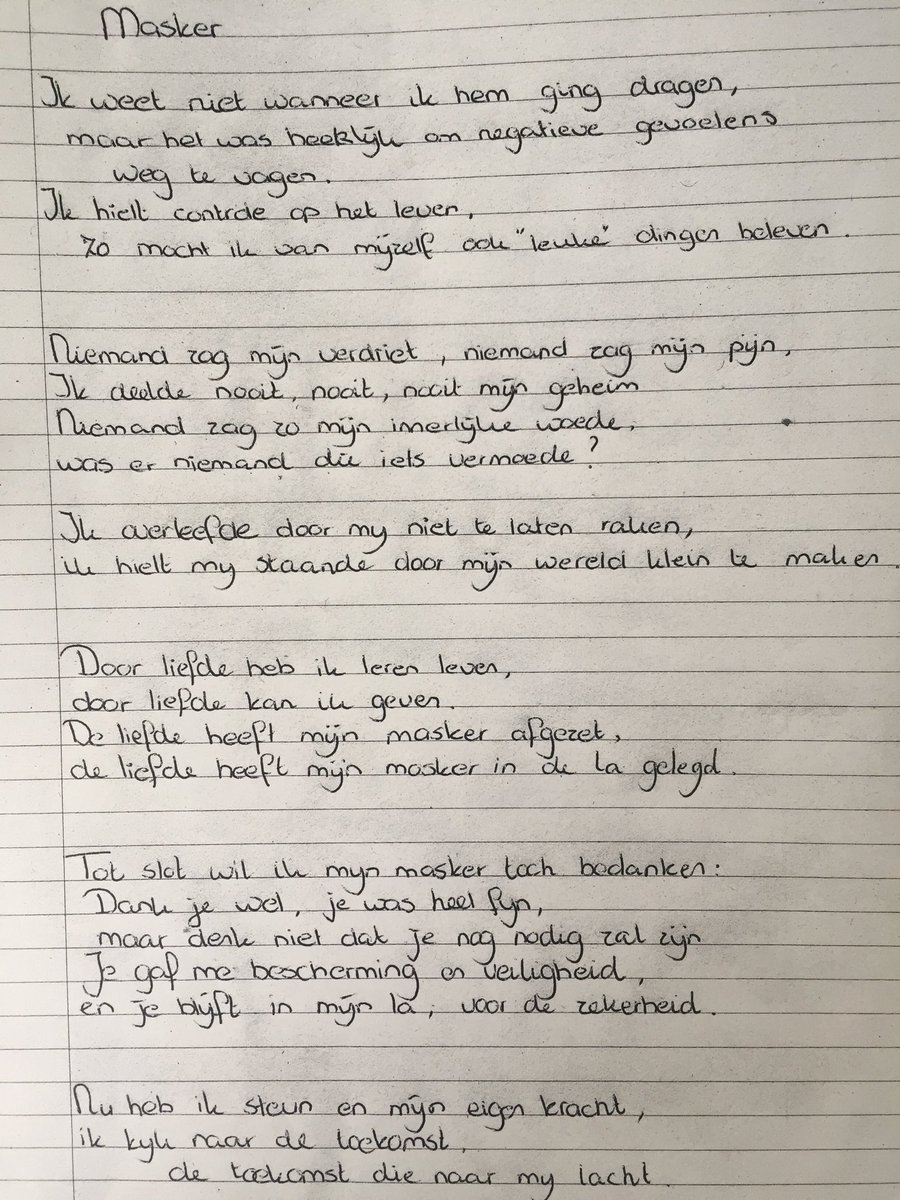 Masker
Ik weet niet wanneer ik hem ging dragen,
maar het was heerlijk om negatieve gevoelens
weg te vagen.
Ik hielt controle op het leven,
zo mocht ik van mijzelf ook "leuke" dingen beleven.
Niemand zag mijn verdriet, niemand zag mijn pijn,
Ik deelde nooit, nooit, nooit mijn geheim
Niemand zag zo mijn innerlijke woede,
was er niemand die iets vermoede?
Ik overleefde door my niet te laten raken,
ik hielt my staande door mijn wereld klein te maken.
Door liefde heb ik leren leven,
door liefde kan ik geven.
De liefde heeft mijn masker afgezet,
de liefde heeft mijn masker in de la gelegd.
Tot slot wil ik myn masker toch bedanken:
Dank je wel, je was heel fyn,
maar denk niet dat je nog nodig zal zijn
Je gaf me bescherming en veiligheid,
en je blijft in mijn la, voor de zekerheid.
Nu heb ik steun en mijn eigen kracht,
ik kyk naar de toekomst,
de toekomst die naar my lacht.